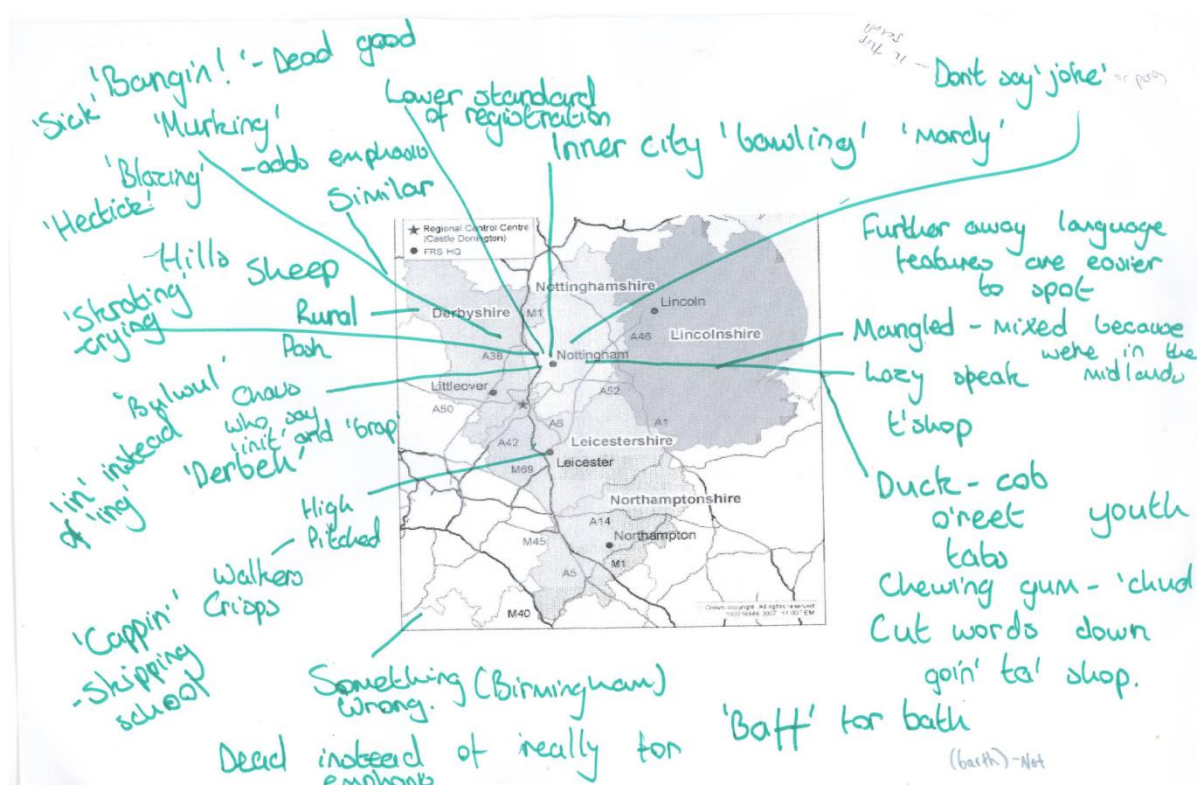 'Bangin!' - Dead good
'Sick'
'Murking'
'Blazing' - adds emphasis
'Hectick'
Similar
Lower standard
of registration
Inner city 'bowling' 'mardy'
Don't say 'joke'
Hills Sheep
Rural
Posh
'Skrating'
- crying
Chavs
who say
'init' and 'Grap'
'Derbeh'
'in' instead
of 'ing'
High
Pitched
Walkers
Crisps
'Cappin''
- Skipping
school
Something (Birmingham)
wrong.
Dead instead of really for
emphasis
'Baff' for bath
(barth) - Not
Further away language
features are easier
to spot
Mangled - mixed because
we're in the
midlands
Lazy speak
t'shop
Duck - cob
o'reet youth
tabs
Chewing gum - 'chud
Cut words down
goin' ta' shop.
★ Regional Control Centre
(Castle Donington)
● FRS HQ
Nottinghamshire
Derbyshire
M1
Lincoln
Lincolnshire
A46
A38
Nottingham
Littleover
A50
A52
A6
A1
A42
Leicestershire
Leicester
M69
Northamptonshire
A14
M45
Northampton
A5
M1
M40
© Crown copyright. All rights reserved